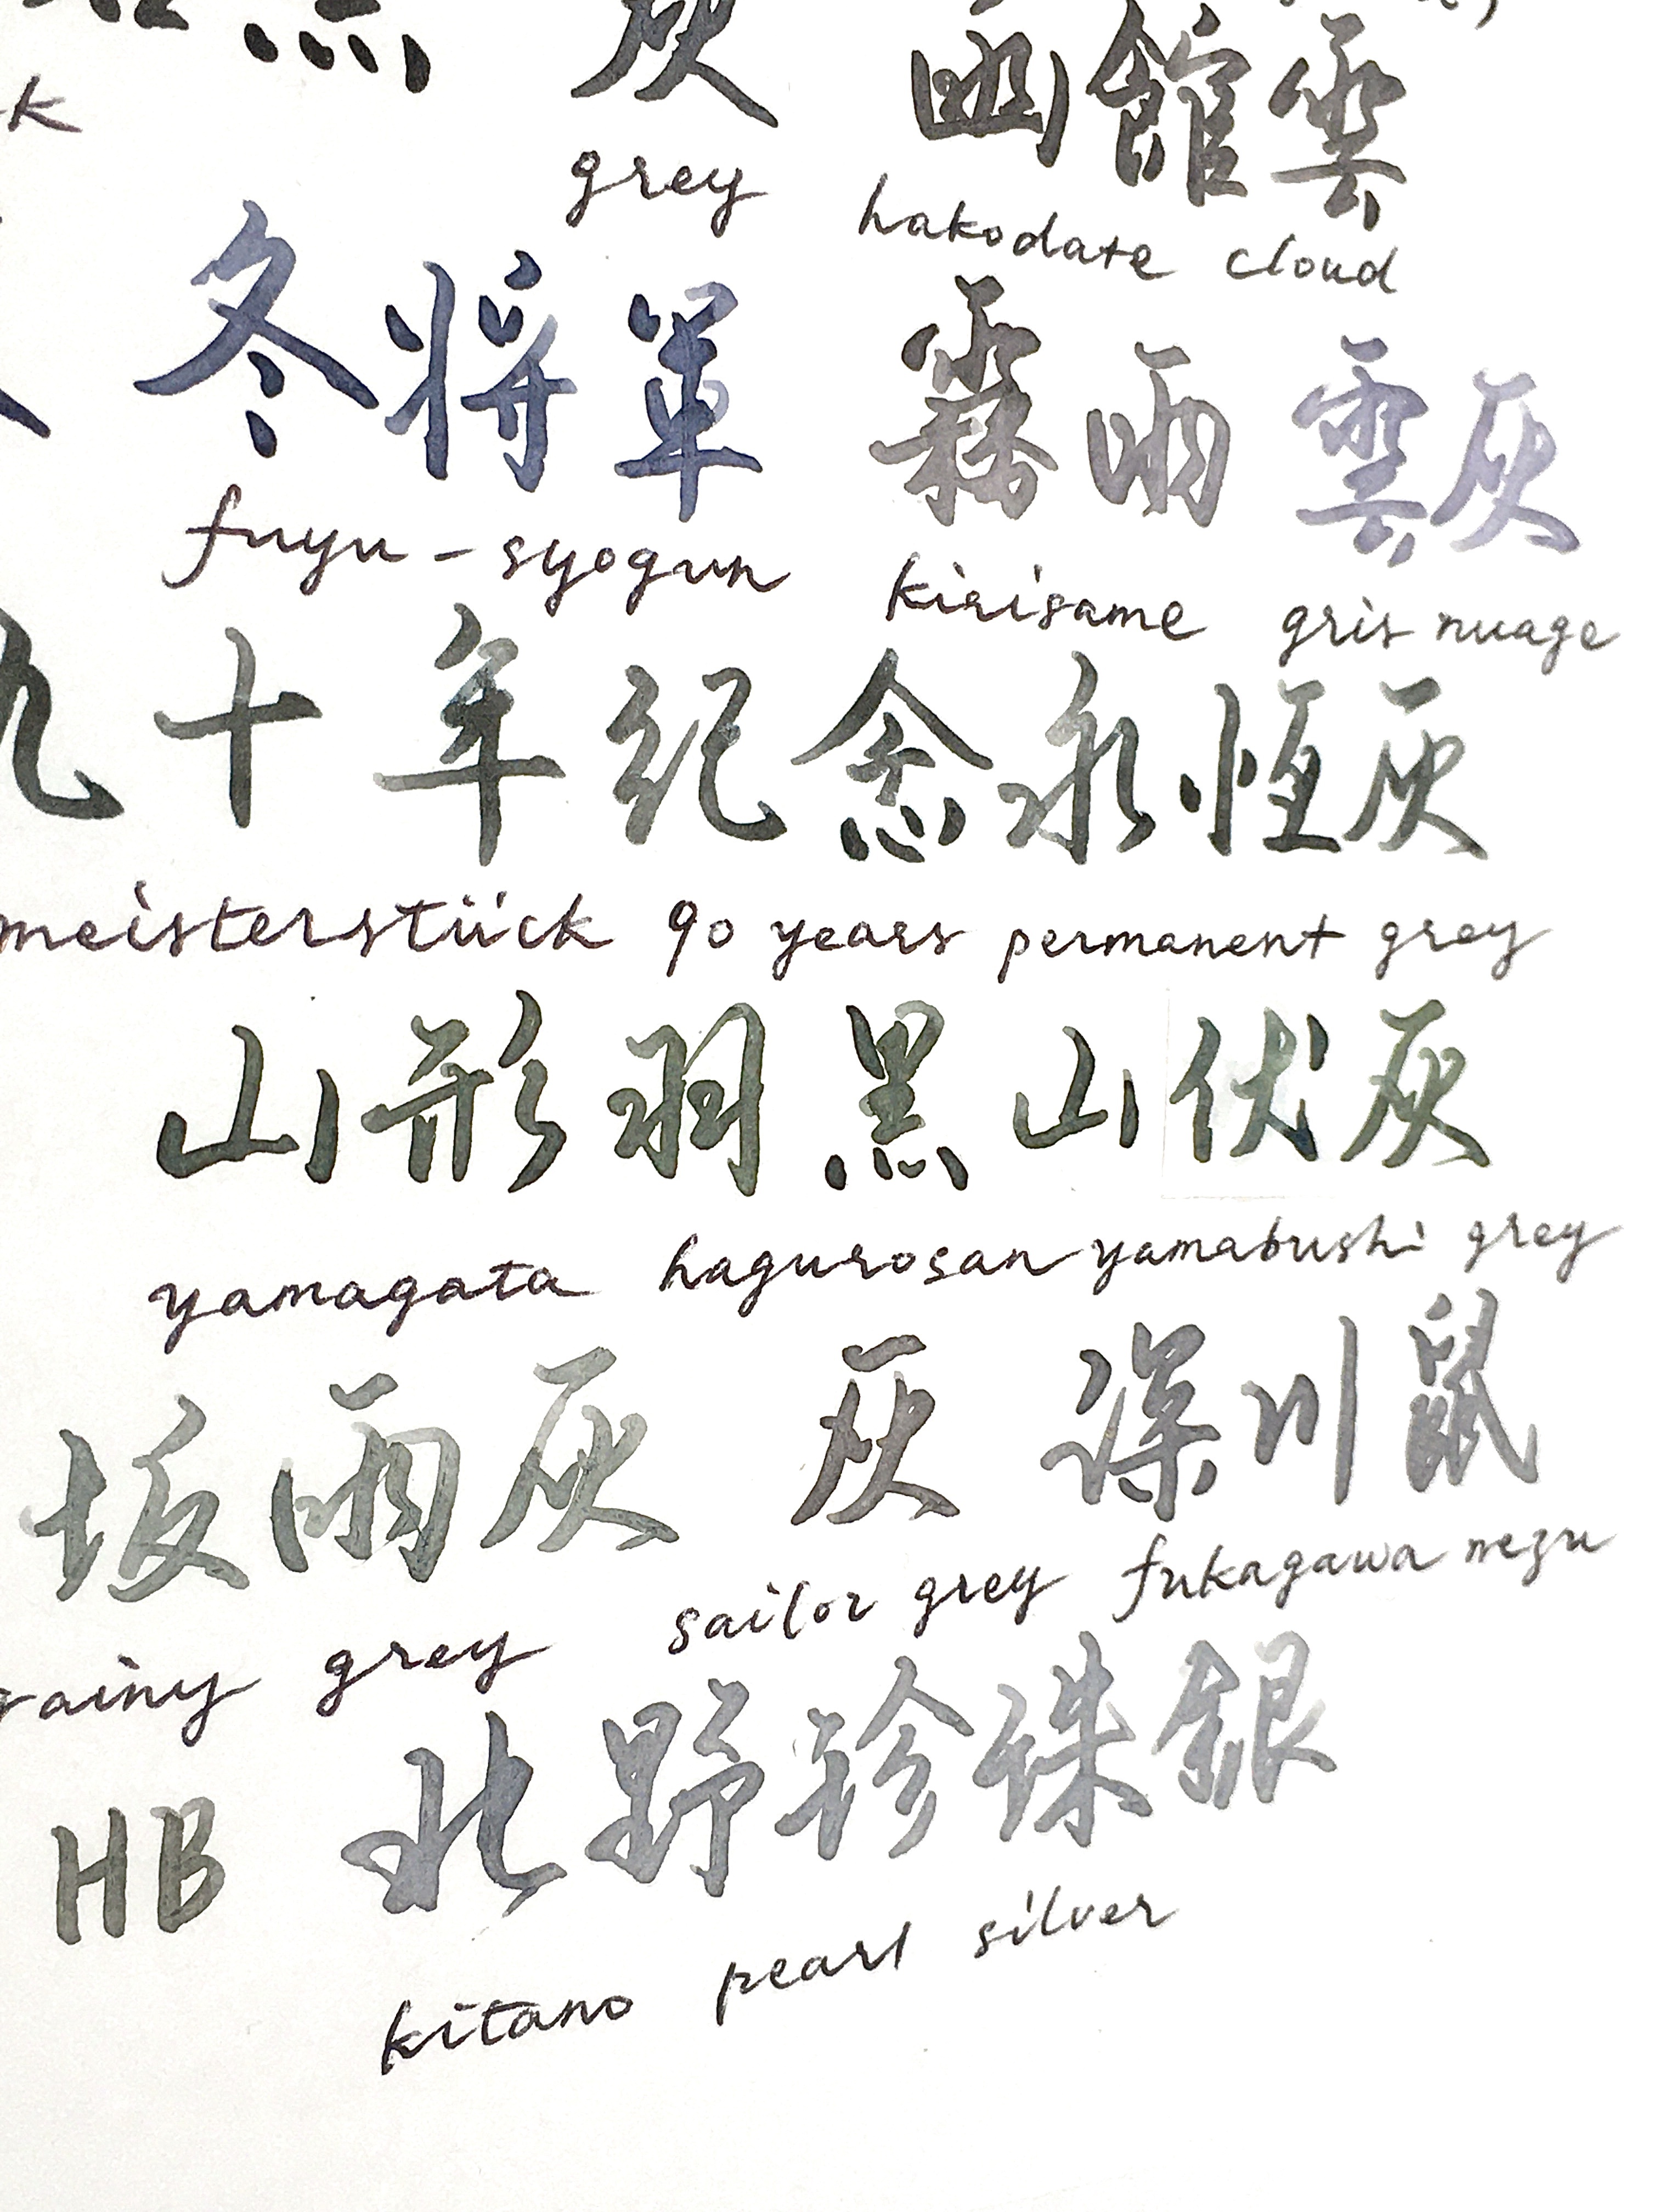 灰 函館雲
grey hakodate cloud
冬將軍 霧雨 雲灰
fuyu-syogun kirisame gris nuage
九十年紀念永恆灰
meisterstück 90 years permanent grey
山形羽黑山伏灰
yamagata hagurosan yamabushi grey
坂雨灰 灰 深川鼠
rainy grey sailor grey fukagawa nezu
HB 北野珍珠銀
kitano pearl silver